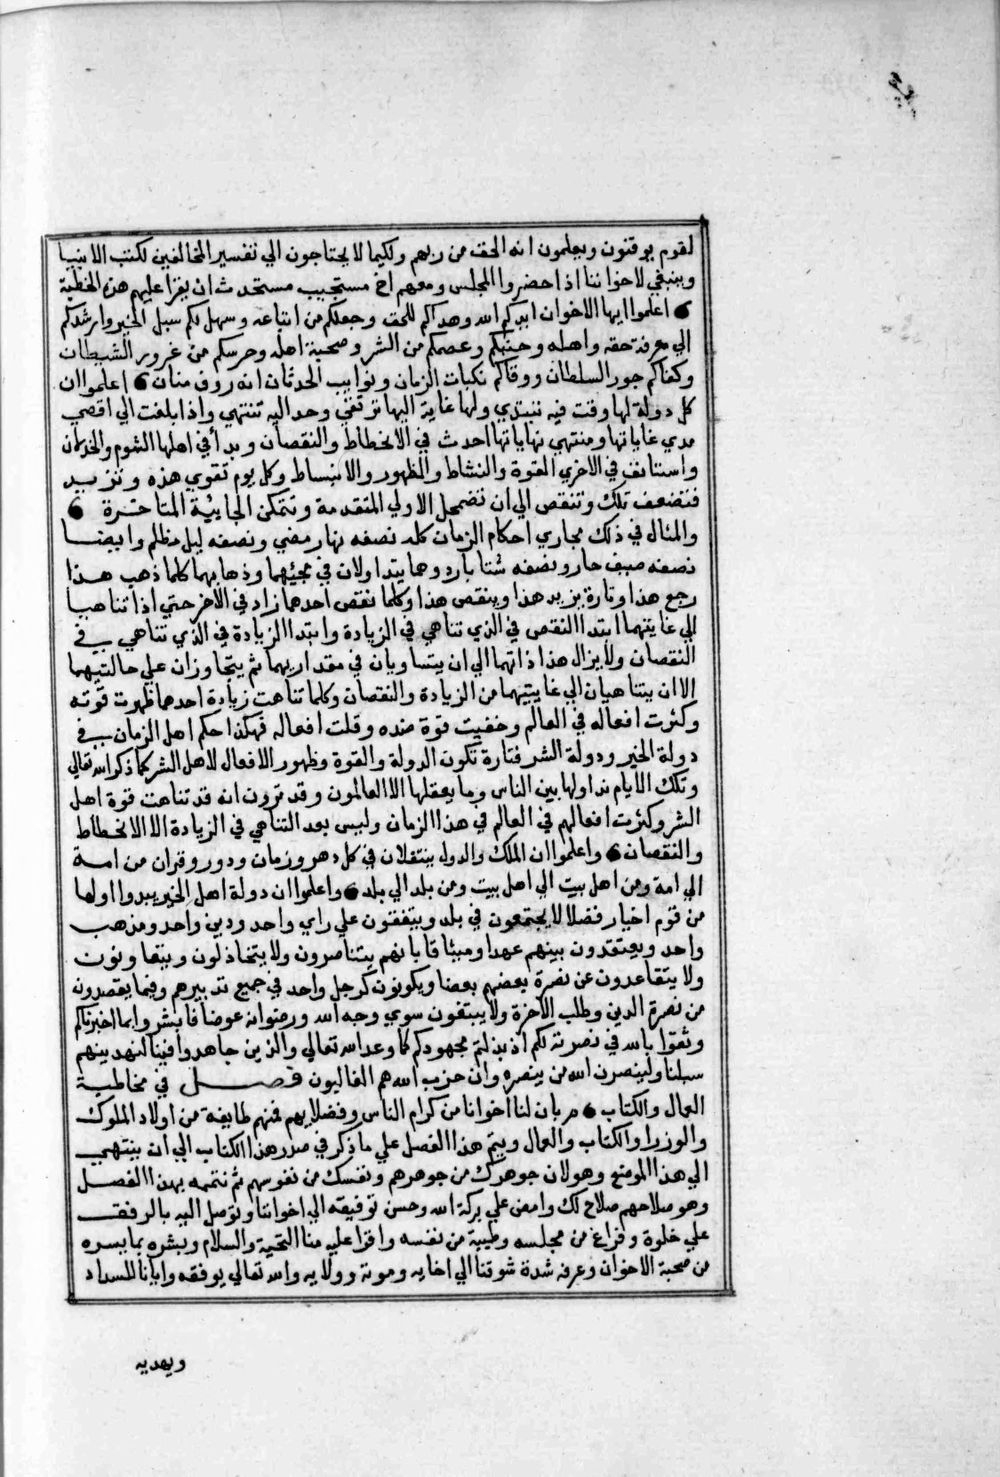 لقوم يوقنون ويعلمون انه الحق من ربهم ولكيما لا يحتاجون الي تفسير المخالفين لكتب الانبيا
وينبغي لاخواننا اذا حضروا المجلس ومعهم اخ مستجيب مستحدث ان يقرا عليهم هذه الخطبة
اعلموا ايها الاخوان ايدكم الله وهداكم للحق وجعلكم من اتباعه وسهل لكم سبل الخير وارشدكم
الي معرفة حقه واهله وجنبكم وعصمكم من الشر وصحبة اهله وحرسكم من غرور الشيطان
وكفاكم جور السلطان ووقاكم نكبات الزمان ونوايب الحدثان انه روف منان اعلموا ان
كل دولة لها وقت فيه تبتدي ولها غاية اليها ترتقي وحد اليه تنتهي واذا بلغت الي اقصي
مدي غاياتها ومنتهي نهاياتها احدث في الانحطاط والنقصان وبدأ في اهلها الشوم والخذلان
واستانف في الاخري القوة والنشاط والظهور والانبساط وكل يوم تقوي هذه وتزيد
فتضعف تلك وتنقص الي ان تضمحل الاولي المتقدمة وتتمكن الجايية المتاخرة
والمثال في ذلك مجاري احكام الزمان كله نصفه نهار مضي ونصفه ليل مظلم وايضا
نصفه صيف حار ونصفه شتا بارد وهما يتداولان في مجيئهما وذهابهما كلما ذهب هذا
رجع هذا وتارة يزيد هذا وينقص هذا وكلما نقص احدهما زاد في الاخر حتي اذا تناهيا
الي غايتهما ابتدا النقص في الذي تناهي في الزيادة وابتدا الزيادة في الذي تناهي في
النقصان ولا يزال هذا ذاتهما الي ان يتساويان في مقداريهما ثم يتجاوزان علي حالتيهما
الا ان يتناهيان الي غايتيهما من الزيادة والنقصان وكلما تناهت زيادة احدهما ظهرت قوته
وكثرت افعاله في العالم وخفيت قوة ضده وقلت افعاله فهكذا حكم اهل الزمان في
دولة الخير ودولة الشر فتارة تكون الدولة والقوة وظهور الافعال لاهل الشر كما ذكر الله تعالي
وتلك الايام نداولها بين الناس وما يعقلها الا العالمون وقد ترون انه قد تناهت قوة اهل
الشر وكثرت افعالهم في العالم في هذا الزمان وليس بعد التناهي في الزيادة الا الانحطاط
والنقصان واعلموا ان الملك والدول ينتقلان في كل دهر وزمان ودور وقران من امة
الي امة ومن اهل بيت الي اهل بيت ومن بلد الي بلد واعلموا ان دولة اهل الخير يبدوا اولها
من قوم اخيار فضلا يجتمعون في بلد ويتفقون علي راي واحد ودين واحد ومذهب
واحد ويعتقدون بينهم عهدا وميثاقا بانهم يتناصرون ولا يتخاذلون ويتعاونون
ولا يتقاعدون عن نصرة بعضهم بعضا ويكونون كرجل واحد في جميع تدبيرهم وفيما يقصدون
من نصرة الدين وطلب الاخرة ولا يبتغون سوي وجه الله ورضوانه عوضا فابشروا بما اخبرناكم
وثقوا بالله في نصرته لكم اذ بذلتم مجهودكم كما وعد الله تعالي والذين جاهدوا فينا لنهدينهم
سبلنا ولينصرن الله من ينصره وان حزب الله هم الغالبون فصل في مخاطبة
العمال والكتاب بان لنا اخوانا من كرام الناس وفضلايهم فمنهم طايفة من اولاد الملوك
والوزرا والكتاب والعمال ويتم هذا الفصل علي ما ذكر في صدر هذا الكتاب الي ان ينتهي
الي هذا الموضع وهو لان جوهرك من جوهرهم ونفسك من نفوسهم ثم نتممه بهذا الفصل
وهو صلاحهم صلاح لك وامض علي بركة الله وحسن توفيقه الي اخواننا وتوصل اليه بالرفق
علي خلوة وفراغ من مجلسه وطيبة من نفسه واقرا عليه منا التحية والسلام وبشره بما يسره
من صحبة الاخوان وعرفه شدة شوقنا الي اخايه ومودته وولايه والله تعالي يوفقه وايانا للسداد
ويهديه